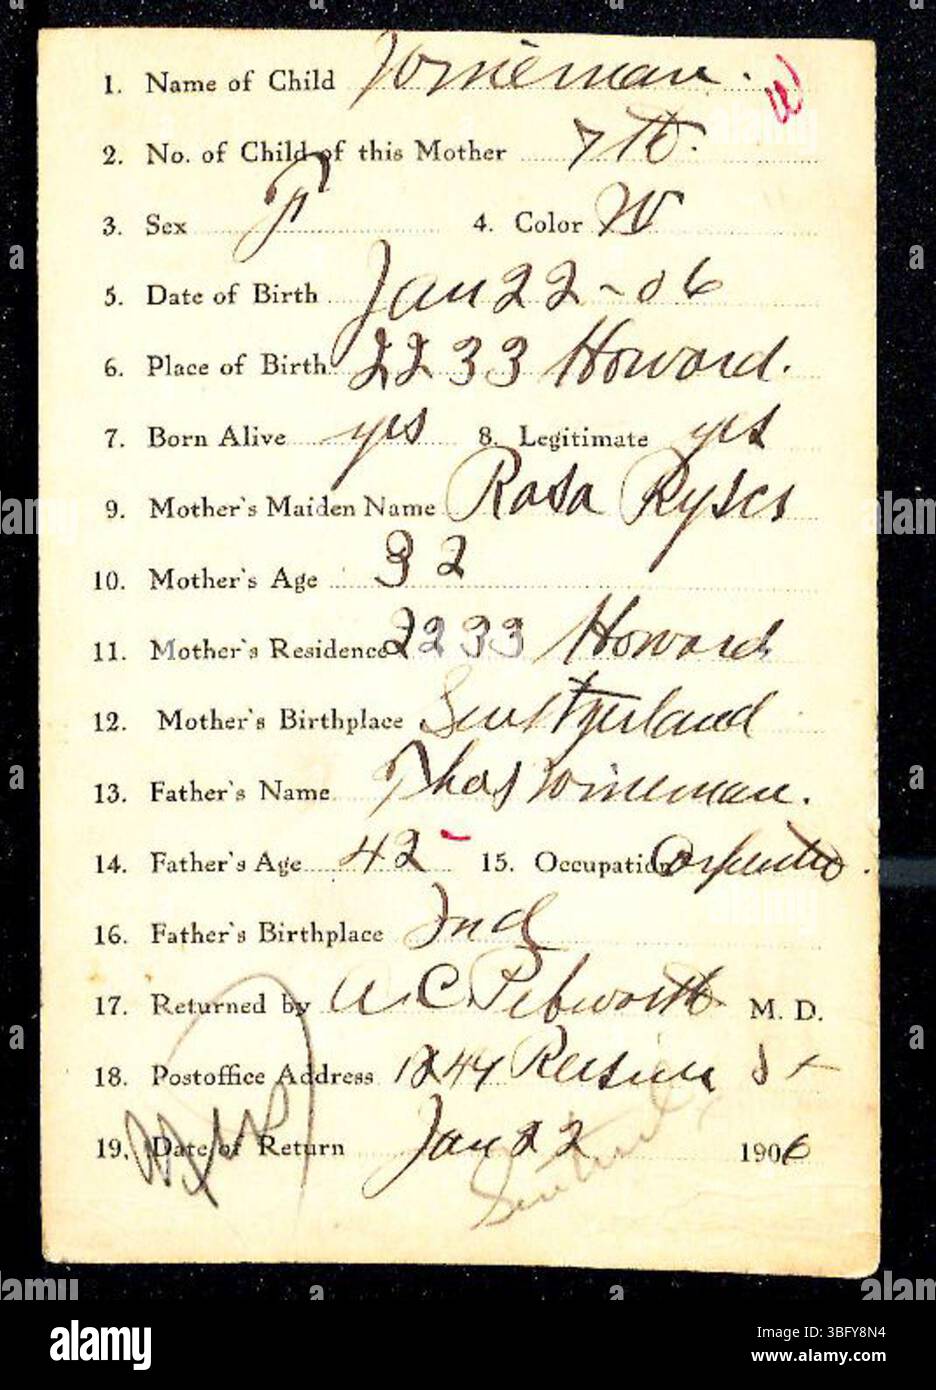 1. Name of Child Wineman.
2. No. of Child of this Mother 7th.
3. Sex F 4. Color W
5. Date of Birth Jan 22-06
6. Place of Birth 2233 Howard.
7. Born Alive yes 8. Legitimate yes
9. Mother's Maiden Name Rosa
10. Mother's Age 32
11. Mother's Residence 2233 Howard.
12. Mother's Birthplace Switzerland
13. Father's Name Thos Wineman.
14. Father's Age 42 15. Occupation Carpenter.
16. Father's Birthplace Ind
17. Returned by A. C. Pebworth M. D.
18. Postoffice Address St
19. Date of Return Jan 22 1906
alamy
Image ID: 3BFY8N4
www.alamy.com